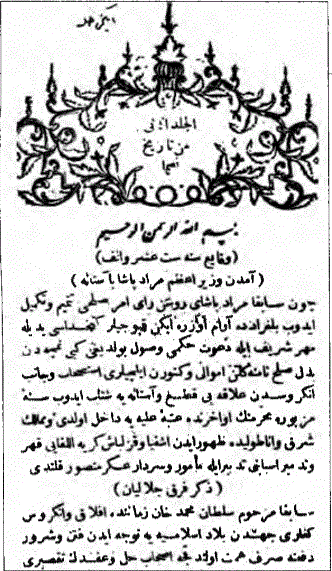 ایکنجی جلد
الجلد الثانی
من تاریخ
نعیما
بسم الله الرحمن الرحیم
(وقایع سنه ست عشر والف)
(آمدن وزیر اعظم مراد پاشا بآستانه)
چون سابقا مراد پاشای روشن رای امر صلحی تتمیم وتکمیل
ایدوب بلغرادده آرام اوزره ایکن قپوجیلر کتخداسی یدیله
مهر شریف ایله دعوت حکمی وصول بولدیغی کبی نمچه دن
بدل صلح نامنه کلان اموال وکتورن ایلچیلری استصحاب وجانب
انکروسدن علاقه یی قطع وآستانه یه شتاب ایدوب سنۀ
مزبوره محرمنك اواخرنده عتبۀ علیه یه داخل اولدی وممالك
شرق واناطولیده ظهور ایدن اشقیا وقزلباش کریه اللقایی قهر
وتدمیر اسبابنی تدبیر ایله مأمور وسردار عسکر منصور قلندی
(ذکر فرق جلالیان)
سابقا مرحوم سلطان محمد خان زماننده افلاق وانکروس
کفاری جهتندن بلاد اسلامیه یه توجه ایدن فتن وشرور
دفعنه صرف همت اولندیغنه اصحاب حل وعقدك تقصیری